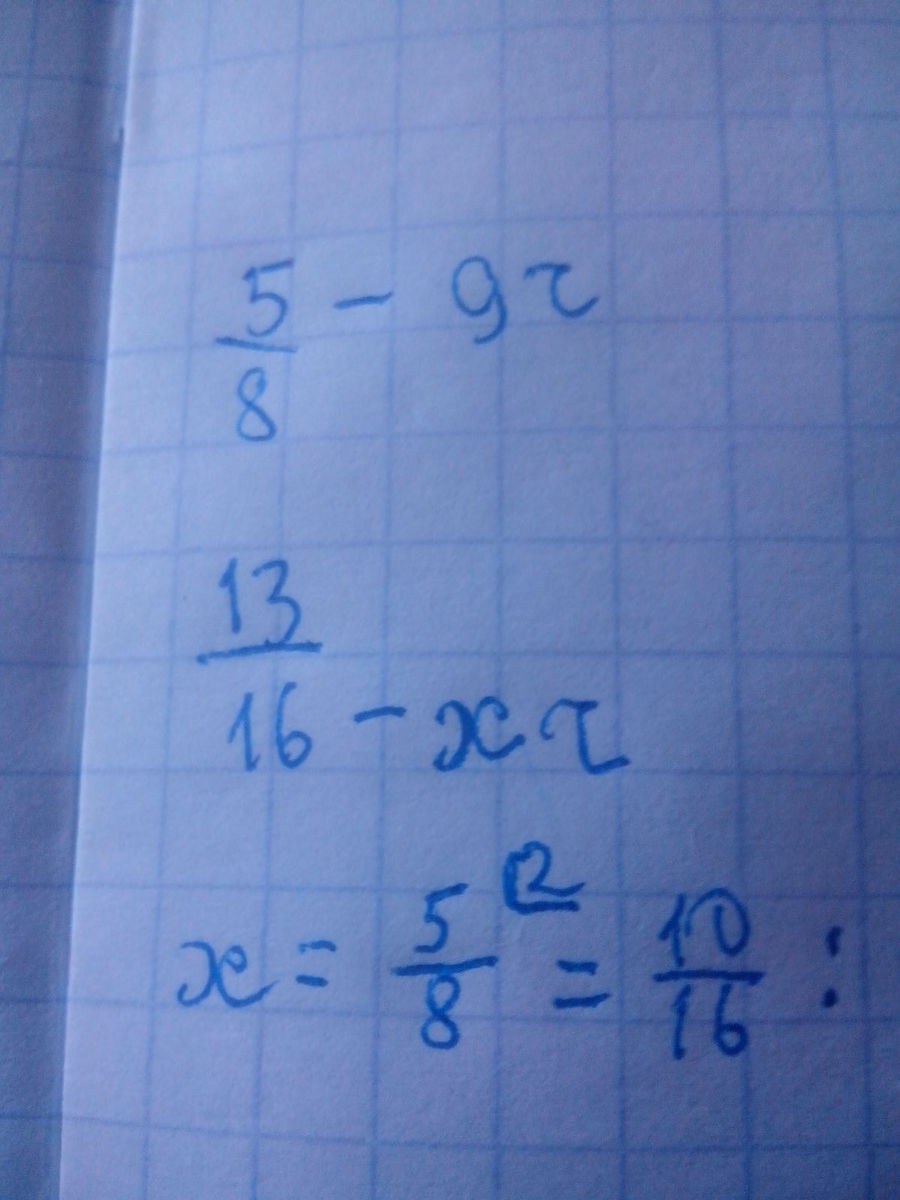 5/8 - 9 τ
13/16 - x τ
x = 5/8 ² = 10/16 :